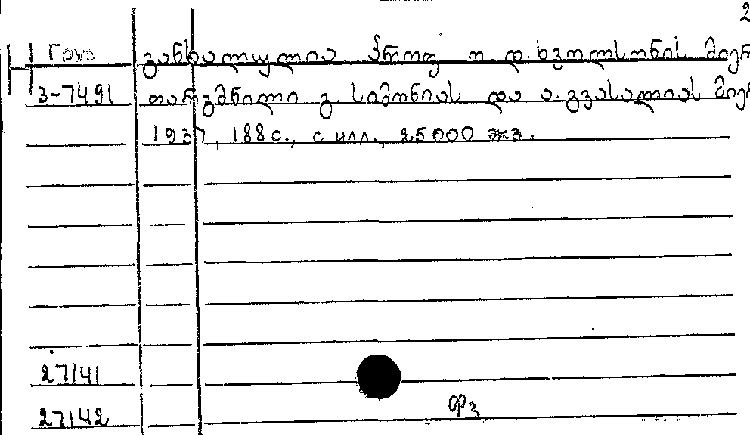 2
განხილულია პროფ ო. დ. ხვოლსონის მიერ
3-7491 თარგმნილი გ. სიმონიას და ა. გვასალიას მიერ
1937, 188 с., с илл., 25000 экз.
27141
27142
ფვ